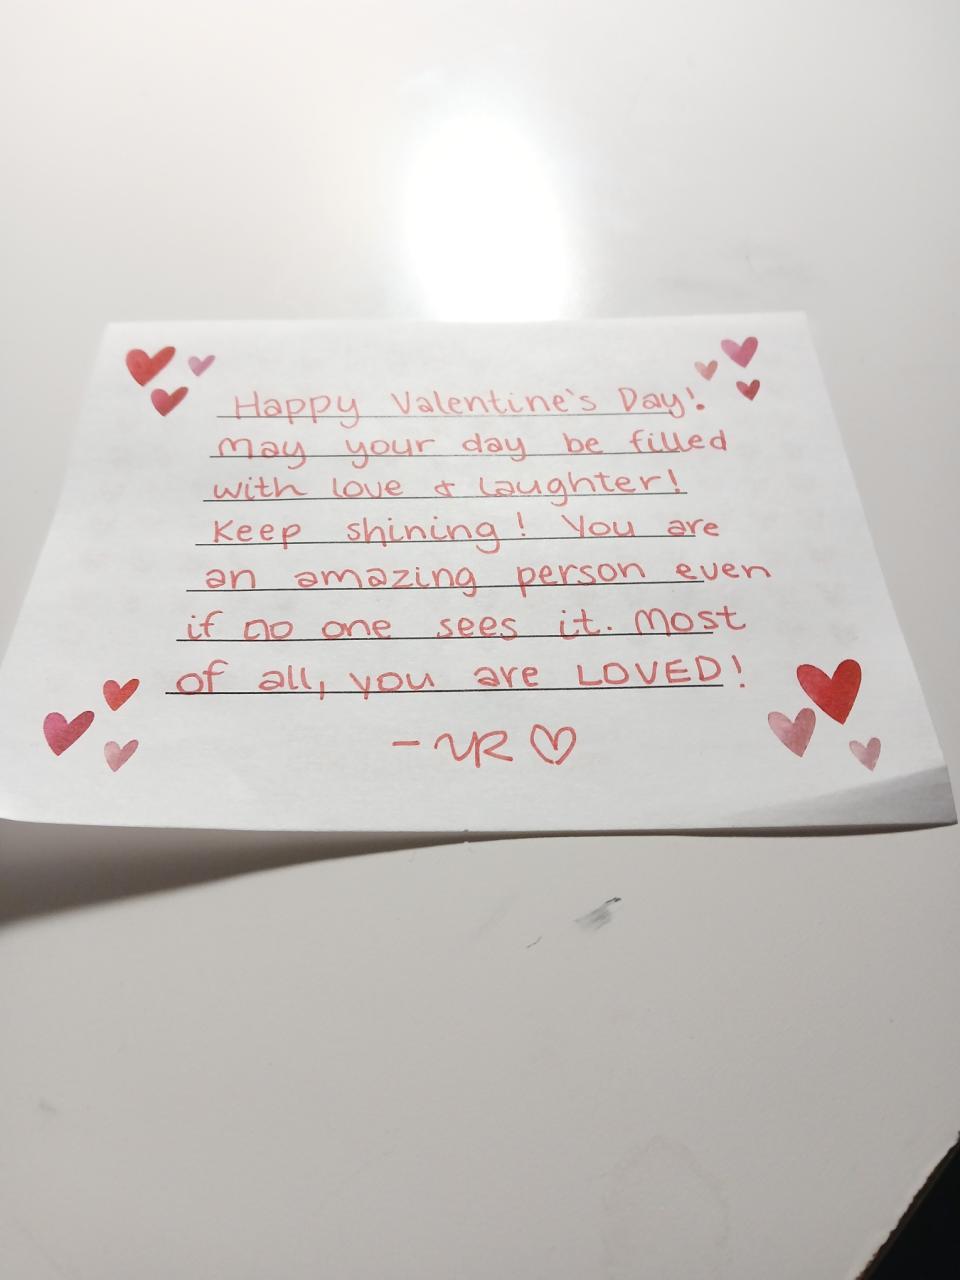 Happy Valentine's Day!
May your day be filled
with love & laughter!
Keep shining! You are
an amazing person even
if no one sees it. Most
of all, you are LOVED!
- VR ♡